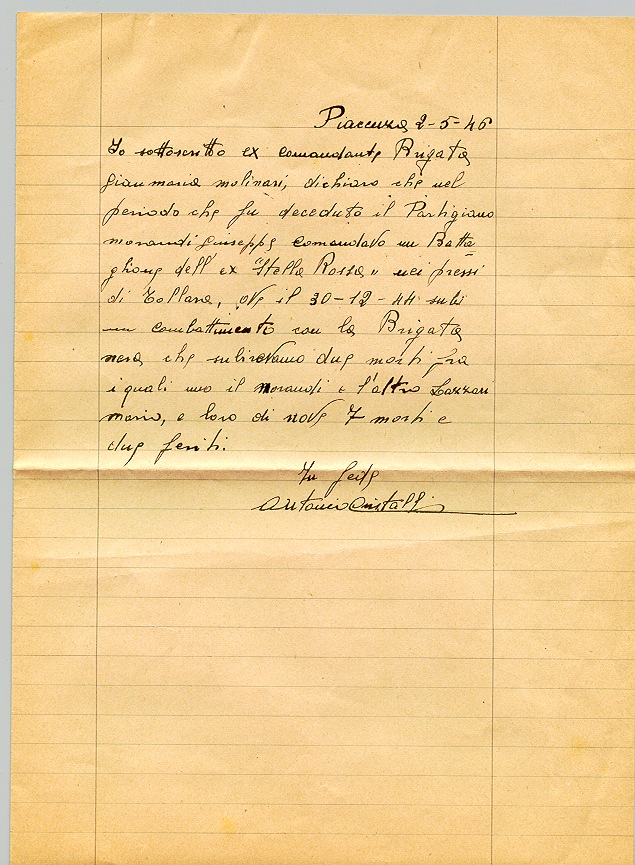 Piacenza 2-5-46
Io sottoscritto ex comandante Brigata
gianmaria molinari, dichiaro che nel
periodo che fu deceduto il Partigiano
morandi giuseppe comandavo un Batta
glione dell' ex "Stella Rossa" nei pressi
di Tollara, ove il 30-12-44 subì
un combattimento con la Brigata
nera che subiravamo due morti fra
i quali uno il morandi e l'altro Lazzari
mario, e loro di nove 7 morti e
due feriti.
In fede
Antonio